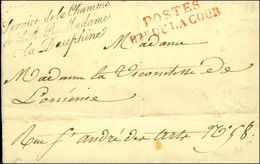 Service de la Chambre
de S.A.R. Madame
la Dauphine
POSTES
Madame
Madame la Vicomtesse de
Rue St andré des Arts No 58.